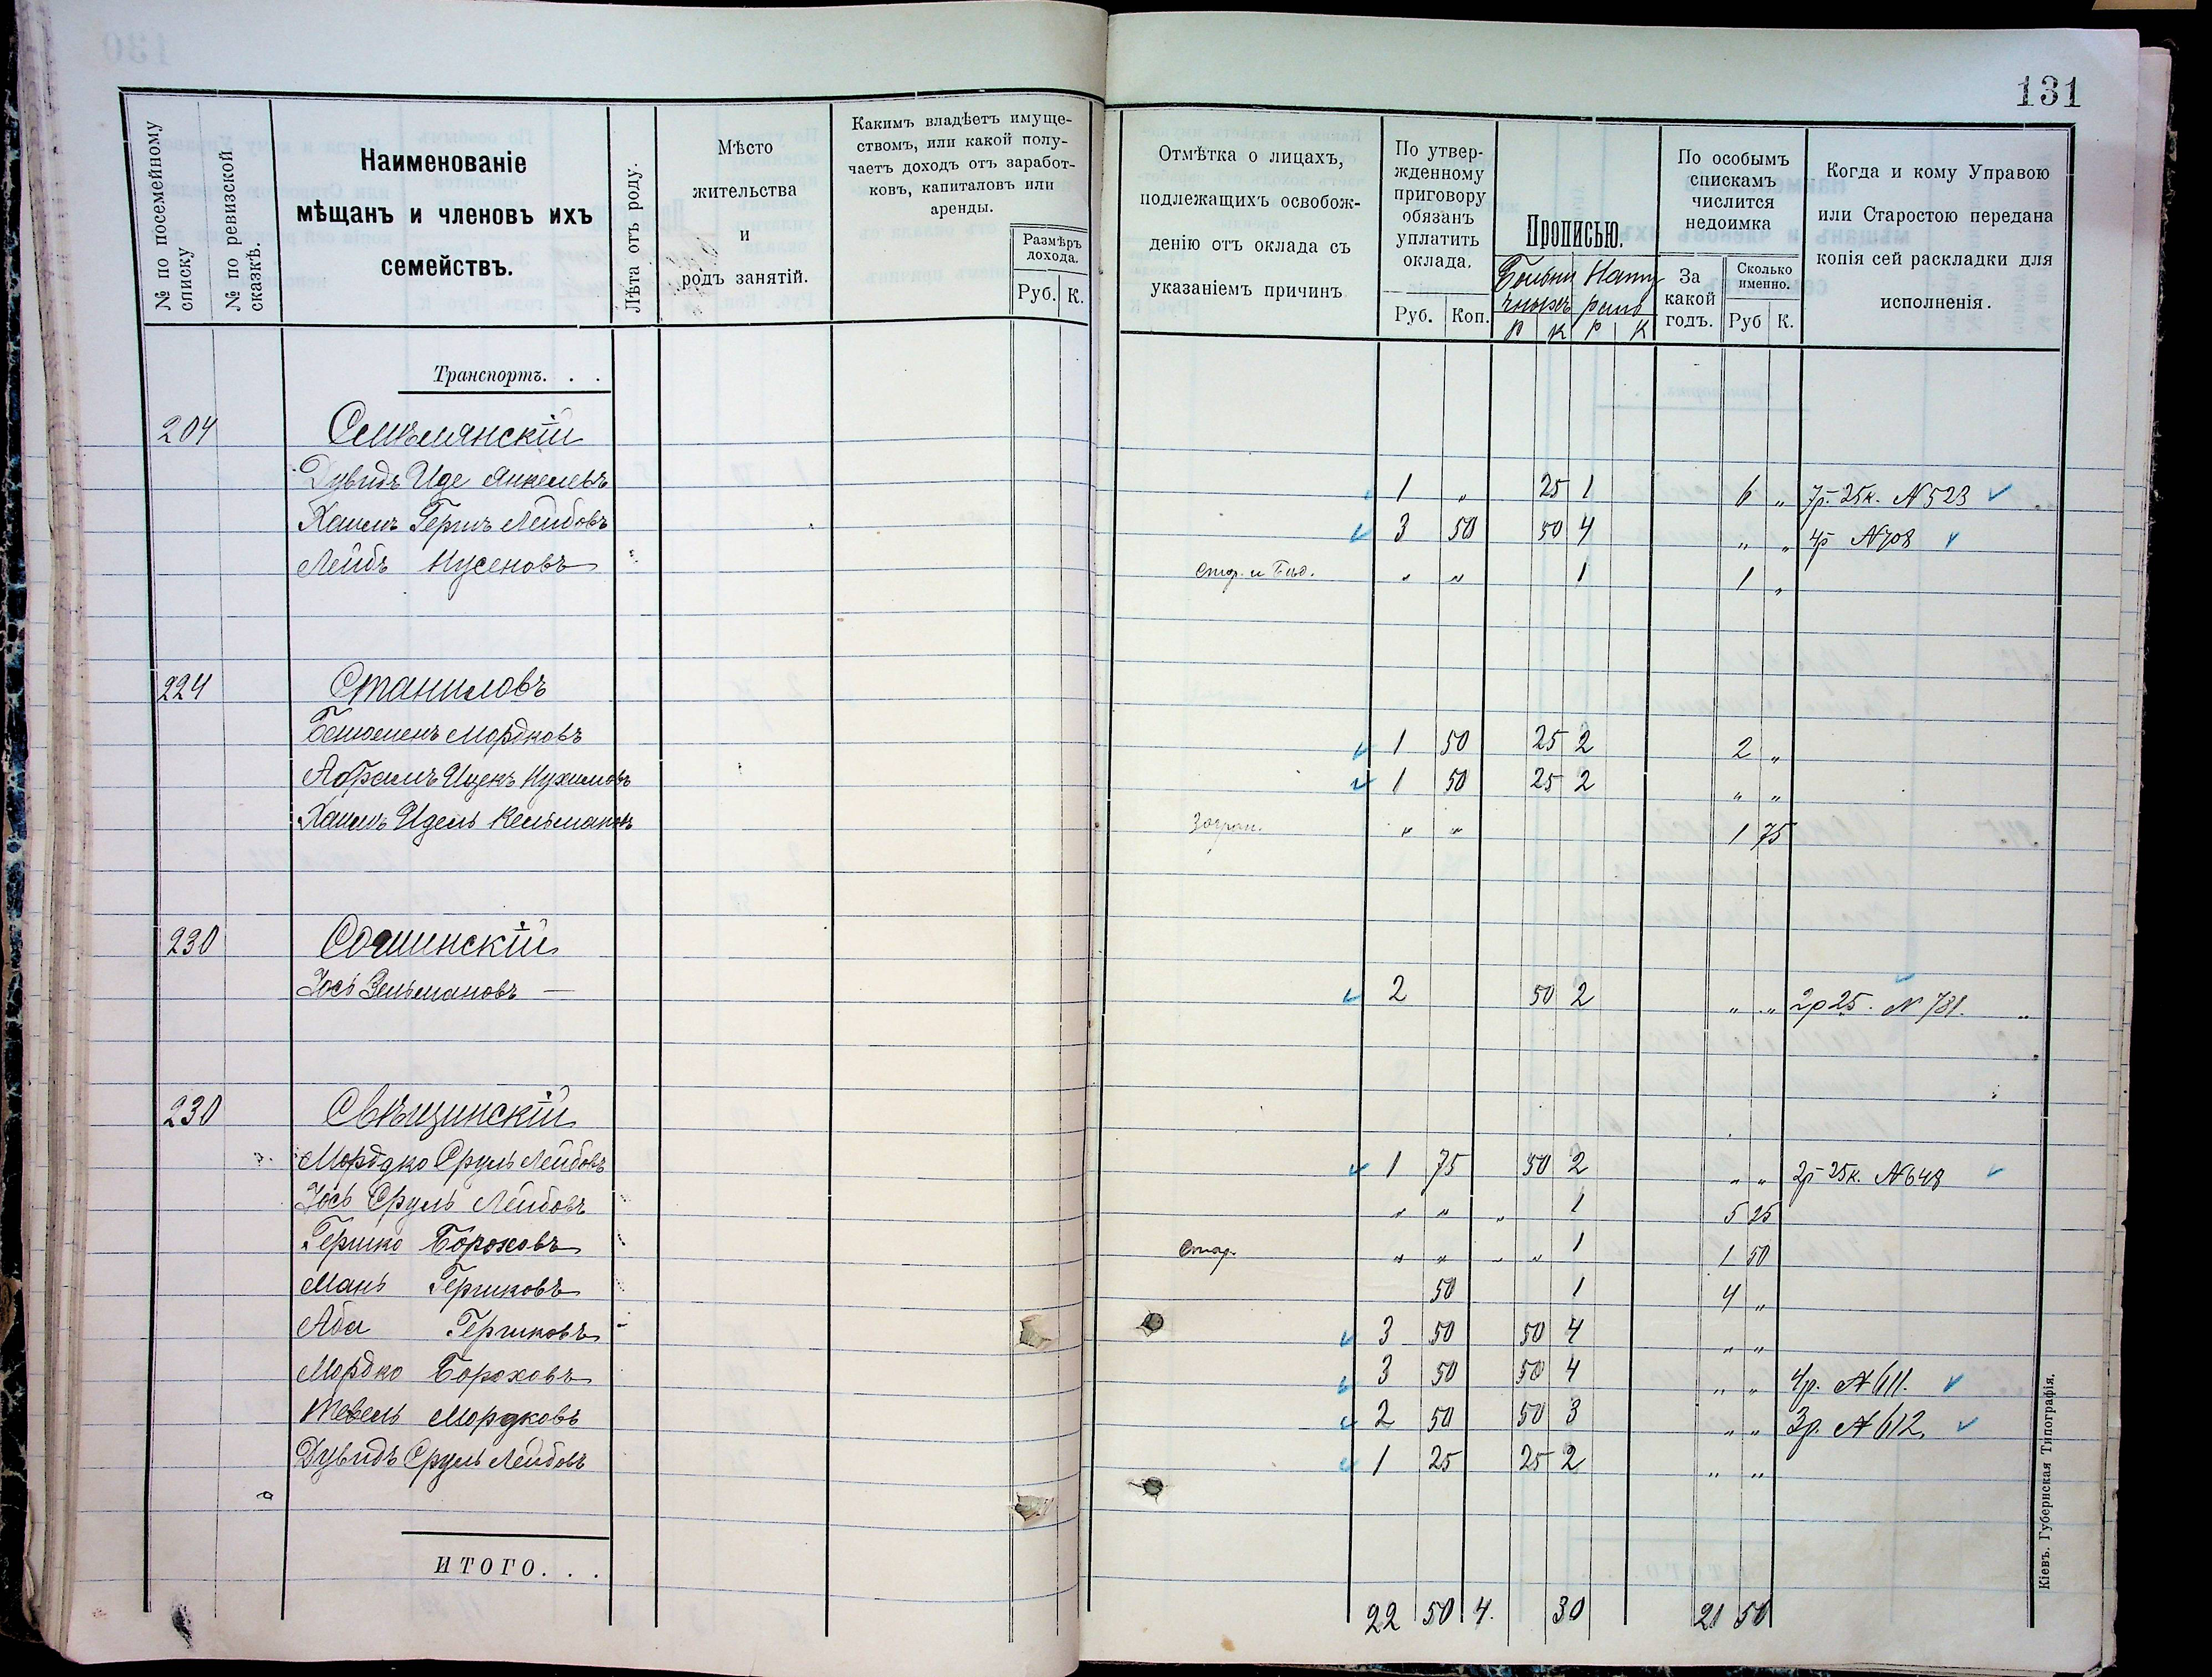 131
№ по посемейному списку
№ по ревизской сказкѣ.
Наименованіе
мѣщанъ и членовъ ихъ
семействъ.
Лѣта отъ роду.
Мѣсто
жительства
и
родъ занятій.
Какимъ владѣетъ имуще-
ствомъ, или какой полу-
чаетъ доходъ отъ заработ-
ковъ, капиталовъ или
аренды.
Размѣръ
дохода.
Руб. К.
Отмѣтка о лицахъ,
подлежащихъ освобож-
денію отъ оклада съ
указаніемъ причинъ
По утвер-
жденному
приговору
обязанъ
уплатить
оклада.
Руб. Коп.
Прописью.
Р К Р К
По особымъ
спискамъ
числится
недоимка
За
какой
годъ.
Сколько
именно.
Руб К.
Когда и кому Управою
или Старостою передана
копія сей раскладки для
исполненія.
Транспортъ. . .
204
Дувидъ Иде Янкелевъ 1 „ 25 1 6 „ 7р. 25к. № 523
Хаимъ Гершъ Лейбовъ 3 50 50 4 „ „ 4р № 708
Лейбъ Нусеновъ „ „ 1 1 „
224 Станиловъ
Мордковъ 1 50 25 2 2 „
Абрамъ Ицекъ Нухимовъ 1 50 25 2 „ „
Хаимъ Идель Кельмановъ Загран. „ „ 1 75
230
Іось Зельмановъ — 2 50 2 „ „ 2р 25. № 781.
230 Свѣщинскій
Мордко Сруль Лейбовъ 1 75 50 2 „ „ 2р 25к. № 648
Іось Сруль Лейбовъ „ „ „ 1 5 25
Гершко Бороховъ Стар. „ „ „ „ 1 1 50
Мань Гершковъ 50 1 4 „
Аба Гершковъ 3 50 50 4 „ „
Мордко Бороховъ 3 50 50 4 „ „ 4р. № 611.
Тевель Мордковъ 2 50 50 3 „ „ 3р. № 612.
Дувидъ Сруль Лейбовъ 1 25 25 2 „ „
ИТОГО. . .
22 50 4. 30 21 50
Кіевъ. Губернская Типографія.